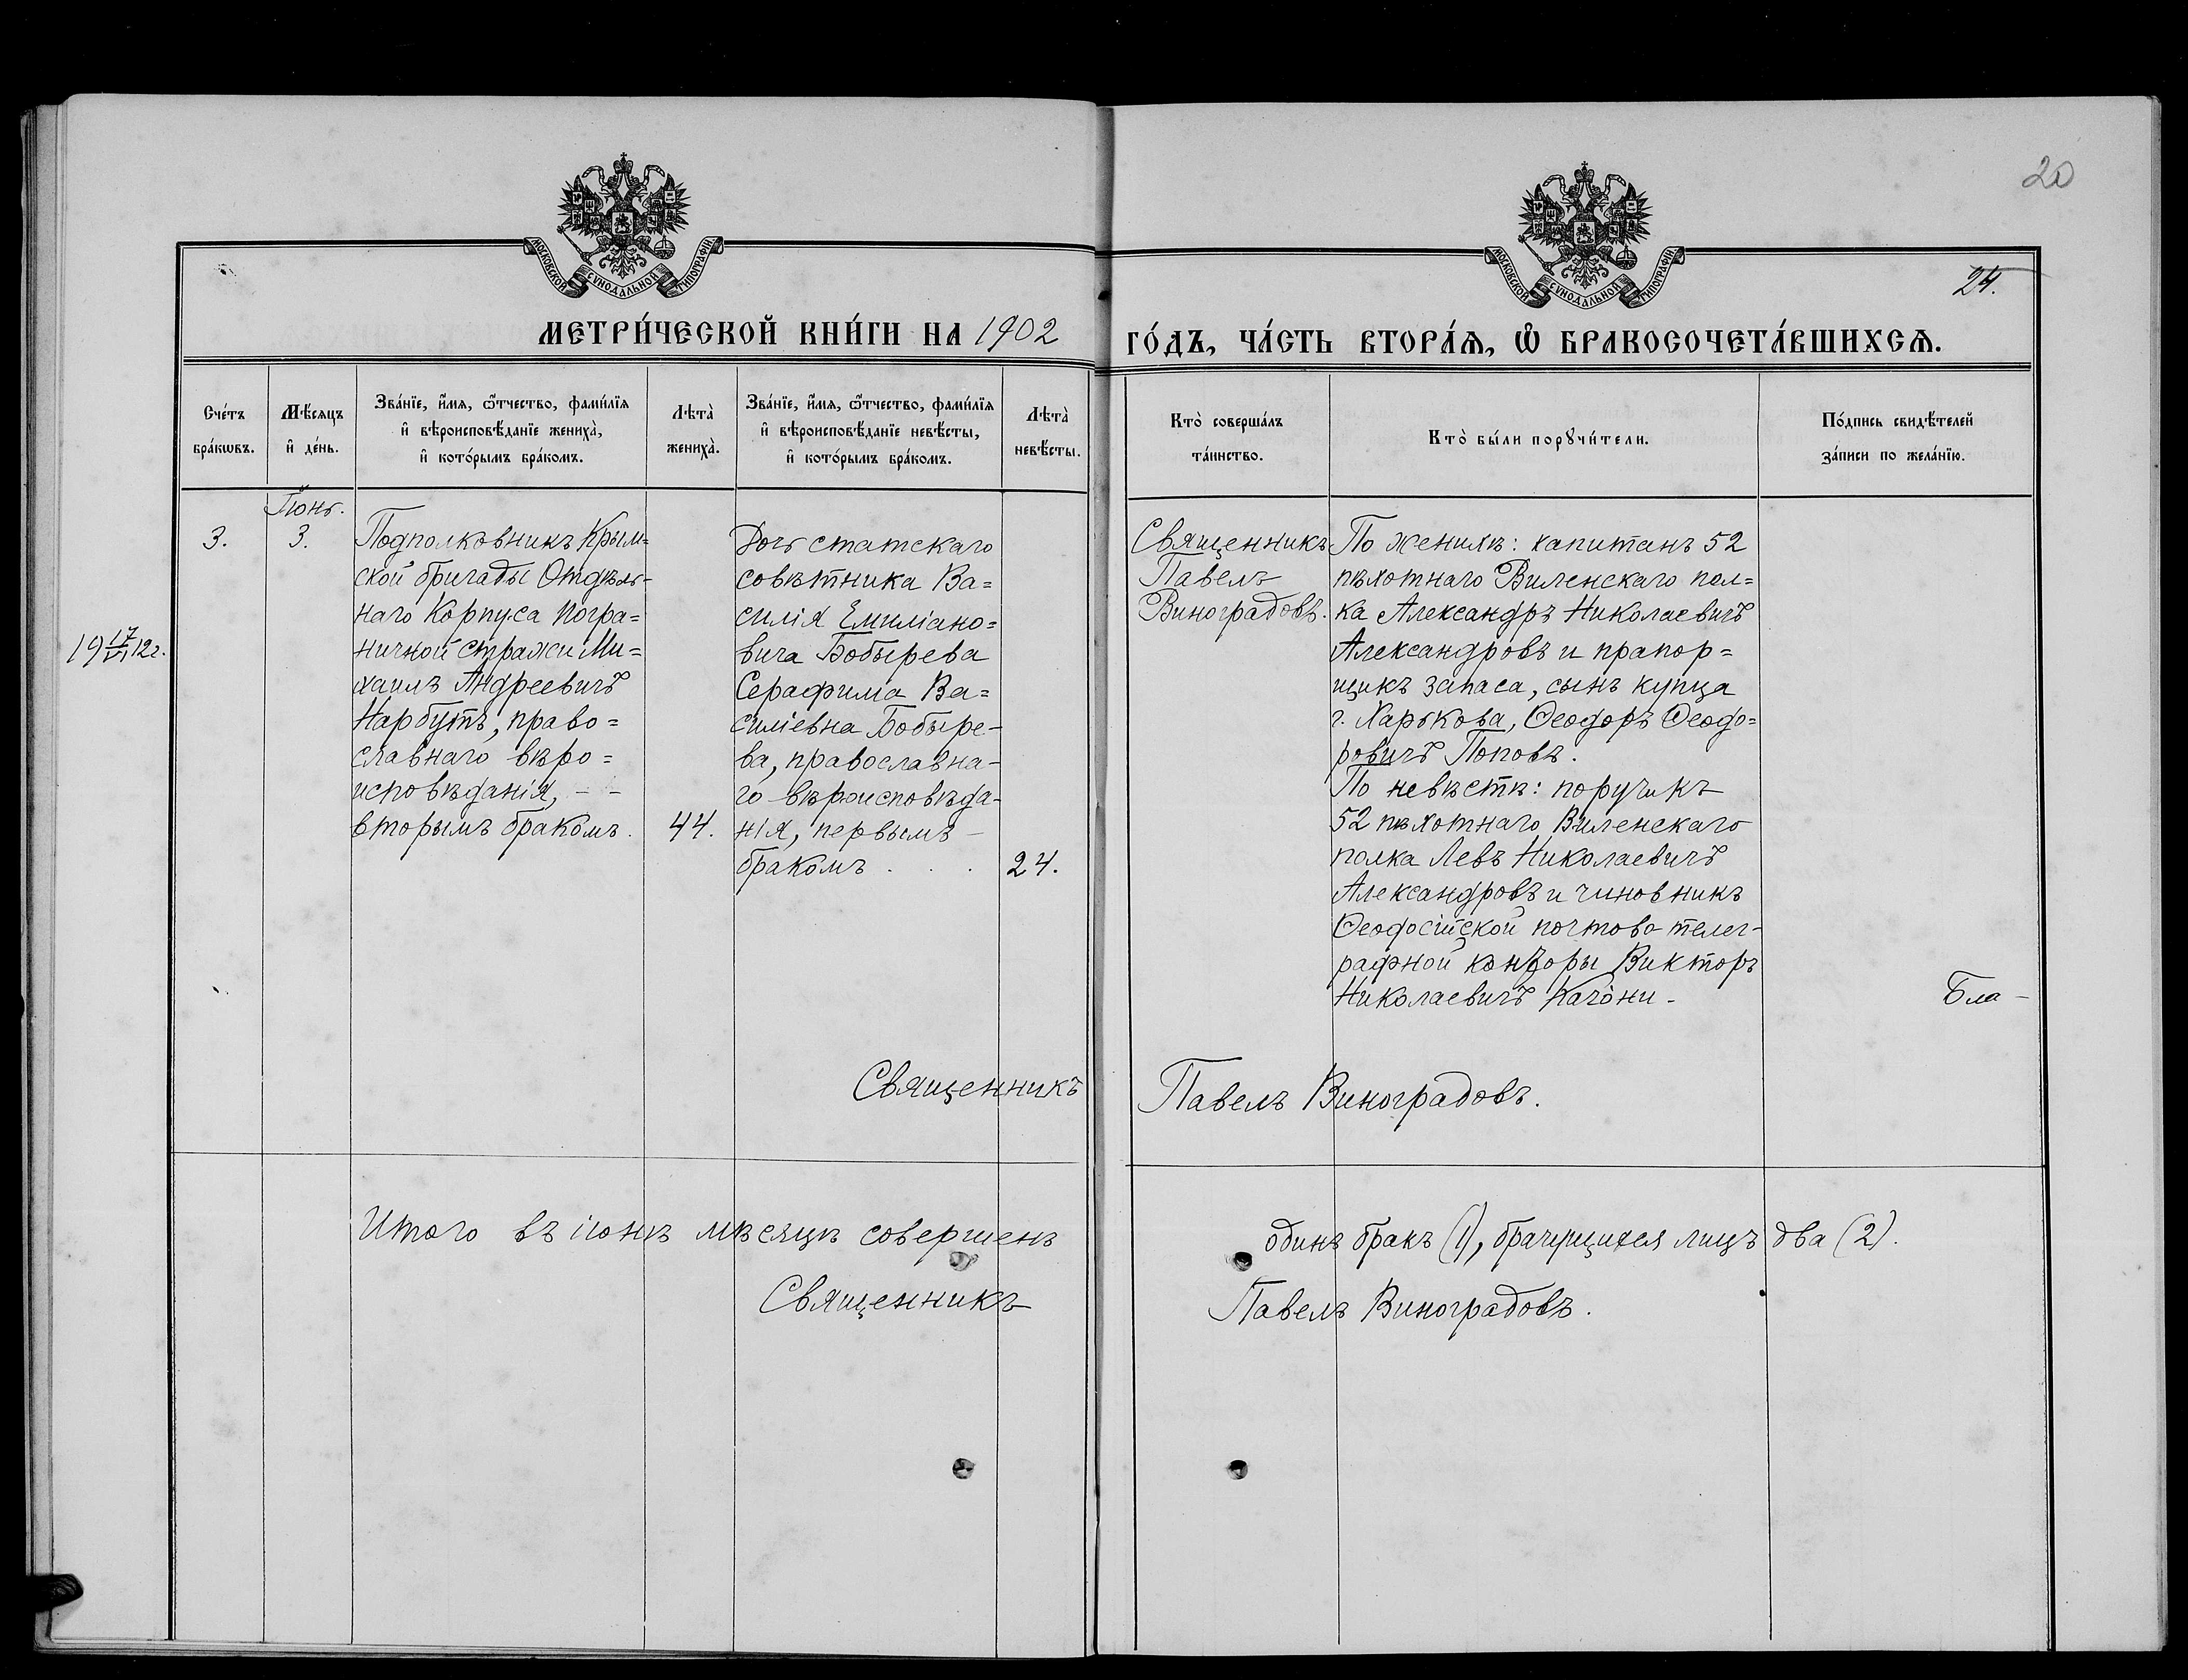 20
24.
МОСКОВСКОЙ СѴНОДАЛЬНОЙ ТИПОГРАФІИ
МОСКОВСКОЙ СѴНОДАЛЬНОЙ ТИПОГРАФІИ
МЕТРИ́ЧЕСКОЙ КНИ́ГИ НА 1902
ГО́ДЪ, ЧА́СТЬ ВТОРА́Ѧ, Ѽ БРАКОСОЧЕТА́ВШИХСѦ.
Сче́тъ
бра́кѡвъ.
Мѣ́сѧцъ
и҆ де́нь.
Зва́нїе, и҆́мѧ, ѻ҆́тчество, фами́лїѧ
и҆ вѣроисповѣ́данїе жениха̀,
и҆ кото́рымъ бра́комъ.
Лѣта̀
жениха̀.
Зва́нїе, и҆́мѧ, ѻ҆́тчество, фами́лїѧ
и҆ вѣроисповѣ́данїе невѣ́сты,
и҆ кото́рымъ бра́комъ.
Лѣта̀
невѣ́сты.
Кто̀ соверша́лъ
та́инство.
Кто̀ бы́ли порꙋчи́тели.
По́дпись свидѣ́телей
за́писи по жела́нїю.
19 17/VI 12 г.
3.
Іюнь.
3.
Подполковникъ Крым=
ской бригады Отдѣль-
наго Корпуса погра=
ничной стражи Ми=
хаилъ Андреевичъ
Нарбутъ, право=
славнаго вѣро=
исповѣданія, - -
вторымъ бракомъ.
44.
Дочь статскаго
совѣтника Ва=
силія Емиліано=
вича Бобырева
Серафима Ва=
силіевна Бобыре-
ва, православна-
го вѣроисповѣда-
нія, первымъ -
бракомъ . . .
24.
Священникъ
Павелъ
Виноградовъ.
По женихѣ: капитанъ 52
пѣхотнаго Виленскаго пол=
ка Александръ Николаевичъ
Александровъ и прапор=
щикъ запаса, сынъ купца
г. Харькова, Ѳеодоръ Ѳеодо=
ровичъ Поповъ.
По невѣстѣ: поручикъ
52 пѣхотнаго Виленскаго
полка Левъ Николаевичъ
Александровъ и чиновникъ
Ѳеодосійской почтово-телег-
рафной конторы Викторъ
Николаевичъ Качони -
Бла-
Священникъ Павелъ Виноградовъ.
Итого въ іюнѣ мѣсяцѣ совершенъ одинъ бракъ (1), брачущихся лицъ два (2).
Священникъ Павелъ Виноградовъ.